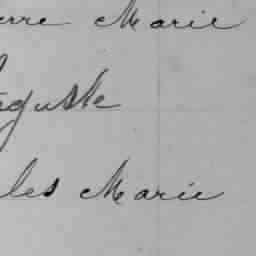 erre Marie
guste
les Marie